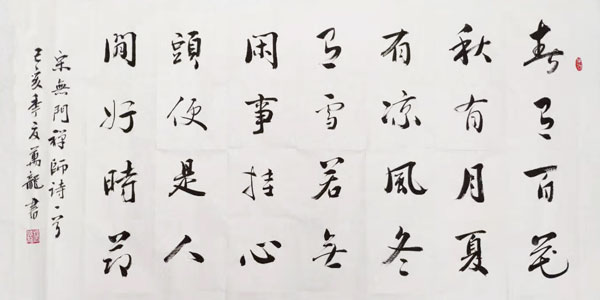 春有百花
秋有月夏
有涼風冬
有雪若無
閑事挂心
頭便是人
間好時節
宋無門禪師詩一首
己亥季夏萬龍書